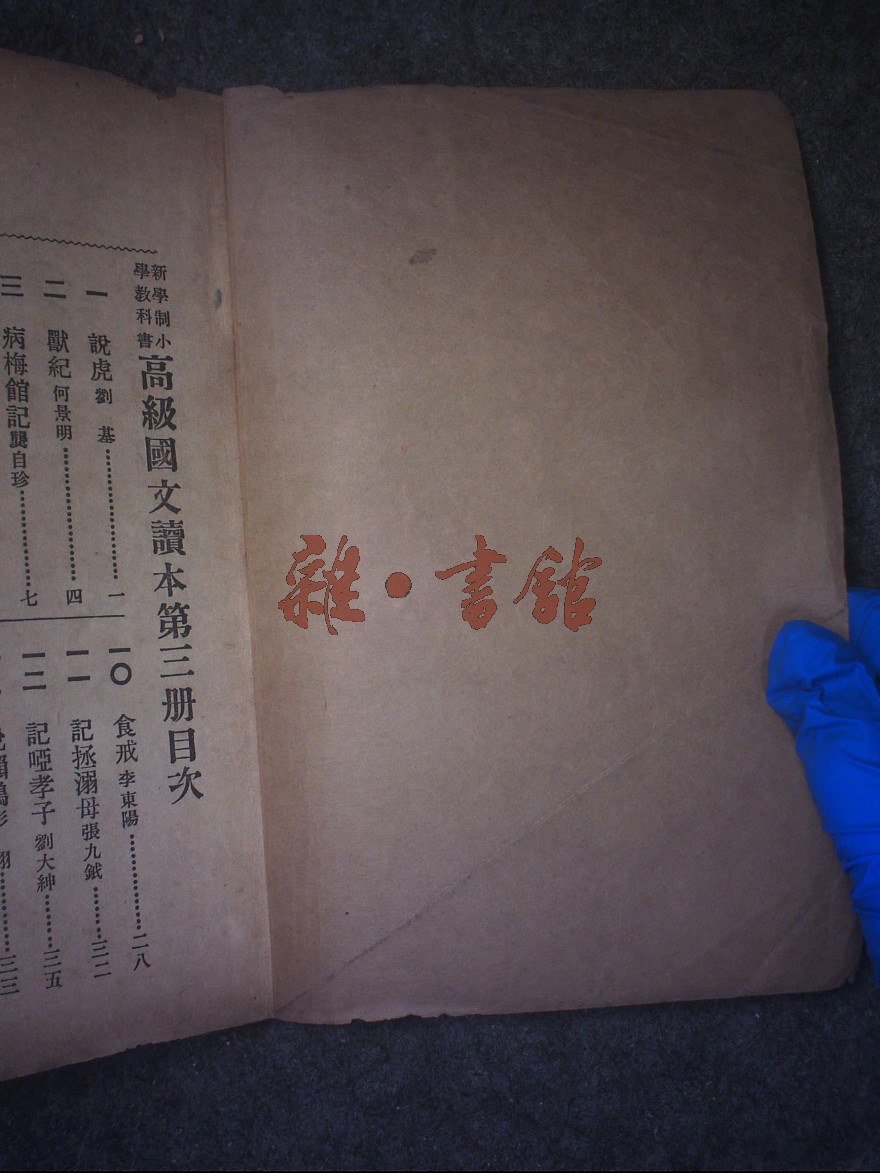 新學制小
學教科書
高級國文讀本第三册目次
一 說虎 劉 基 一
二 獸紀 何景明 四
三 病梅館記 龔自珍 七
一〇 食戒 李東陽 二八
一一 記拯溺母 張九鉞 三二
一二 記啞孝子 劉大紳 三五
雜·書館